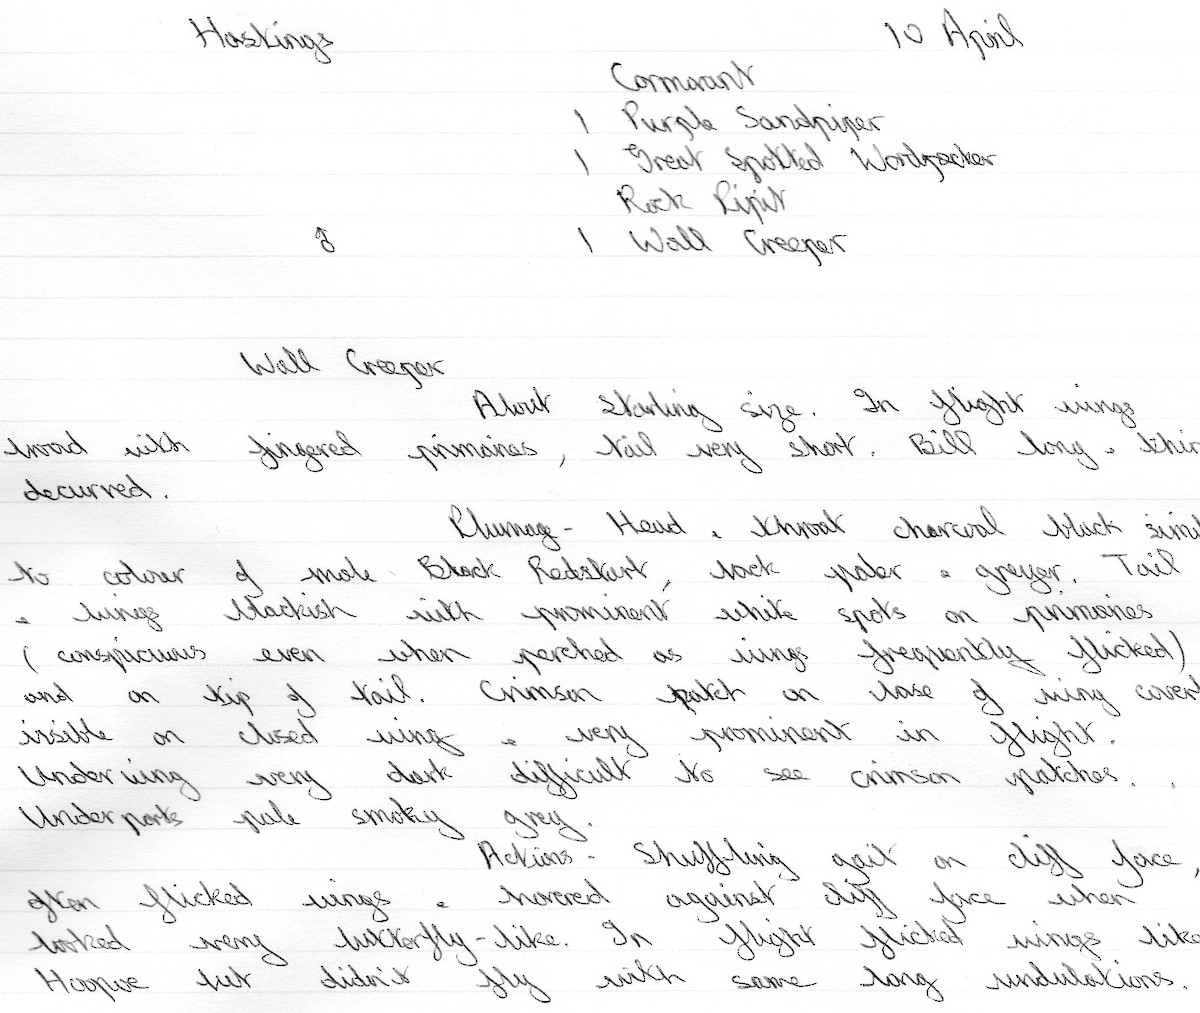 Hastings 10 April
Cormorant
1 Purple Sandpiper
1 Great Spotted Woodpecker
Rock Pipit
♂ 1 Wall Creeper
Wall Creeper
About Starling size. In flight wings
broad with fingered primaries, tail very short. Bill long & thin
decurved.
Plumage - Head & throat charcoal black simi
to colour of male Black Redstart, back paler & greyer. Tail
& wings blackish with prominent white spots on primaries
(conspicuous even when perched as wings frequently flicked)
and on tip of tail. Crimson patch on base of wing covert
visible on closed wing & very prominent in flight.
Underwing very dark difficult to see crimson patches.
Underparts pale smoky grey.
Actions - Shuffling gait on cliff face,
often flicked wings & hovered against cliff face when
looked very butterfly-like. In flight flicked wings like
Hoopoe but didn't fly with same long undulations.